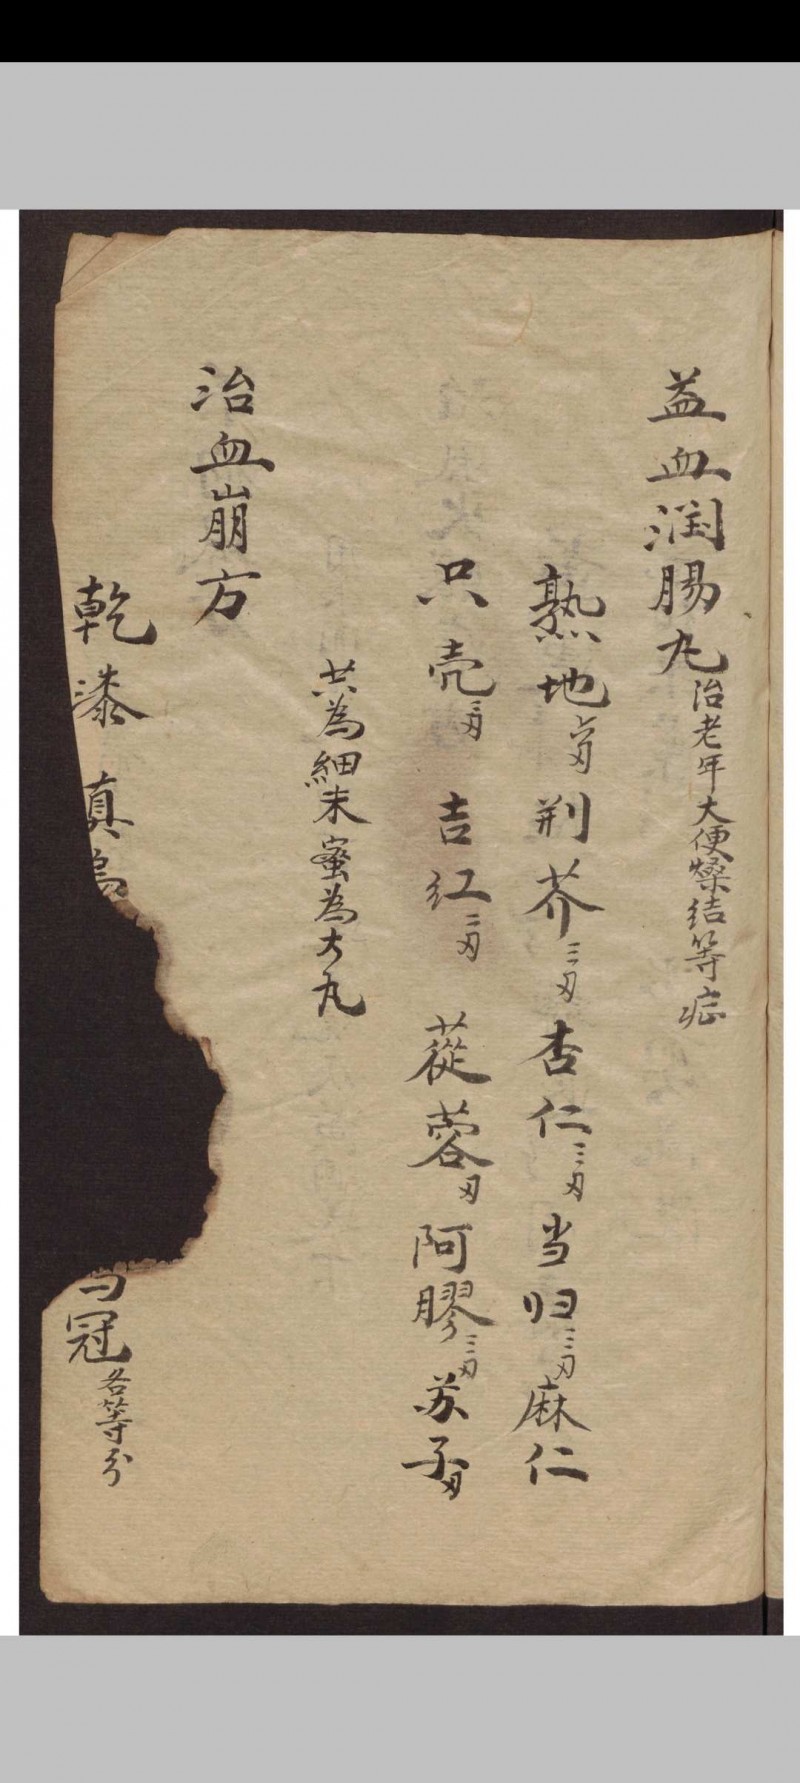 益血润肠丸治老年大便燥结等症
熟地 荆芥三刄 杏仁三刄 当归三刄 麻仁
只壳 吉红二刄 蓯蓉刄 阿膠三刄 苏子
共為細末蜜為大丸
治血崩方
乾漆 冠各等分